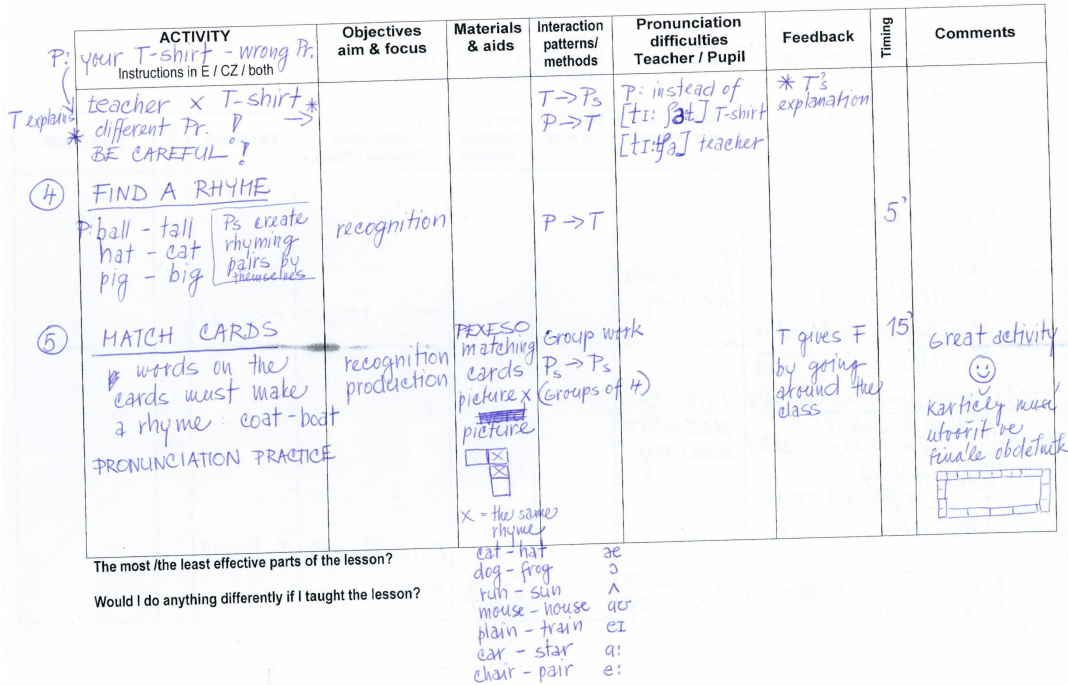 ACTIVITY
Objectives
aim & focus
Materials
& aids
Interaction
patterns/
methods
Pronunciation
difficulties
Teacher / Pupil
Feedback
Timing
Comments
P: your T-shirt - wrong Pr.
Instructions in E / CZ / both
T explains
teacher x T-shirt *
* different Pr. !
BE CAREFUL !
T → Ps
P → T
P: instead of
T-shirt
teacher
* T's
explanation
4 FIND A RHYME
P: ball - tall
hat - cat
pig - big
Ps create
rhyming
pairs by
themselves
recognition
P → T
5'
5 MATCH CARDS
words on the
cards must make
a rhyme : coat - boat
PRONUNCIATION PRACTICE
recognition
production
PEXESO
matching
cards
picture x
picture
x = the same
rhyme
Group work
Ps → Ps
(Groups of 4)
T gives F
by going
around the
class
15'
Great activity
☺
Kartičky musí
utvořit ve
finále obdelník
The most /the least effective parts of the lesson?
Would I do anything differently if I taught the lesson?
cat - hat æ
dog - frog ɔ
run - sun ʌ
mouse - house aʊ
plain - train eɪ
car - star a:
chair - pair e: